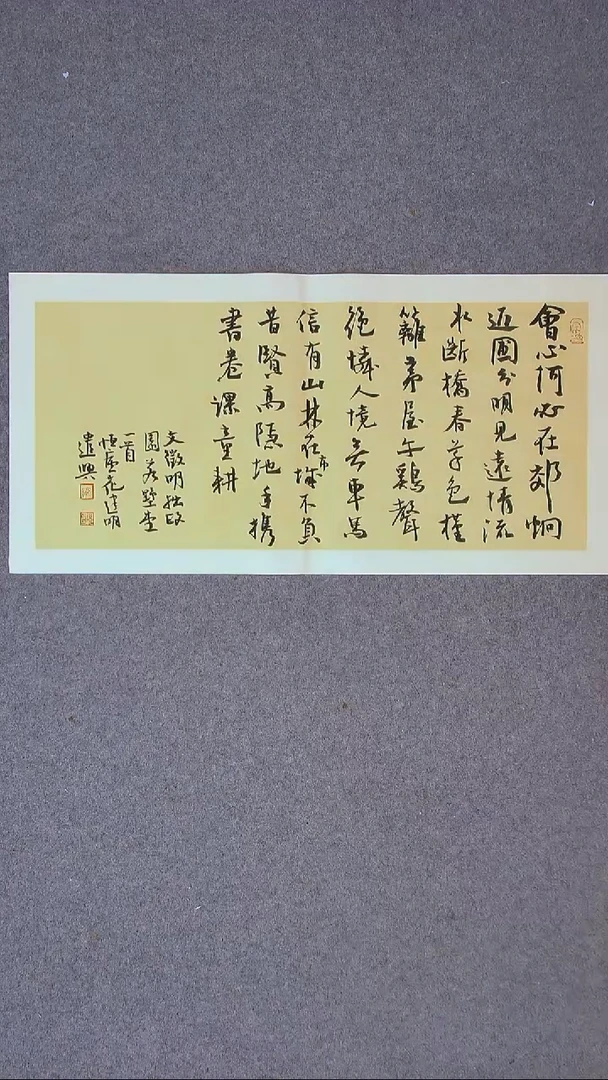 會心何必在郊坰
近圃分明見遠情流
水斷橋春草色槿
籬茅屋午鷄聲
絕憐人境無車馬
信有山林在市城不負
昔賢高隱地手攜
書卷課童耕
文徵明拙政
園若墅堂
一首
恒廬范達明
遣興